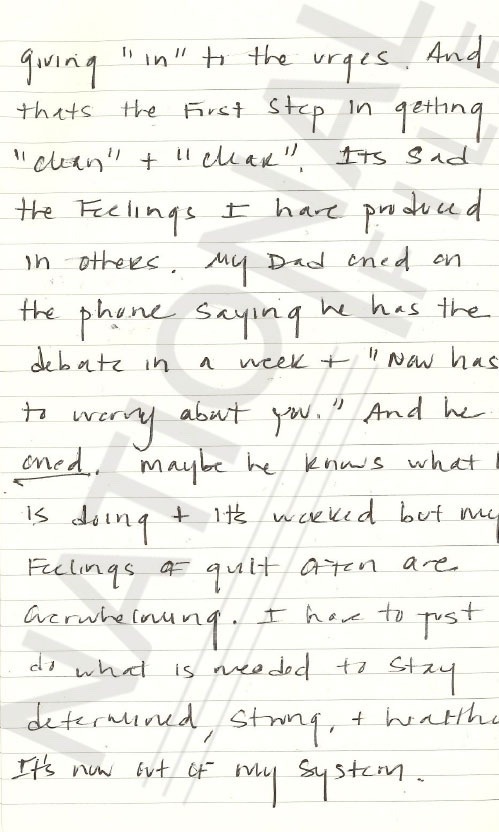 giving "in" to the urges. And
thats the First Step in getting
"clean" + "clear". Its Sad
the Feelings I have produced
in others. My Dad cried on
the phone saying he has the
debate in a week + "Now has
to worry about you." And he
cried. Maybe he knows what
is doing + it's worked but my
Feelings of guilt often are
overwhelming. I have to just
do what is needed to stay
determined, strong, + health
It's now out of my System.
NATIONAL
FILE